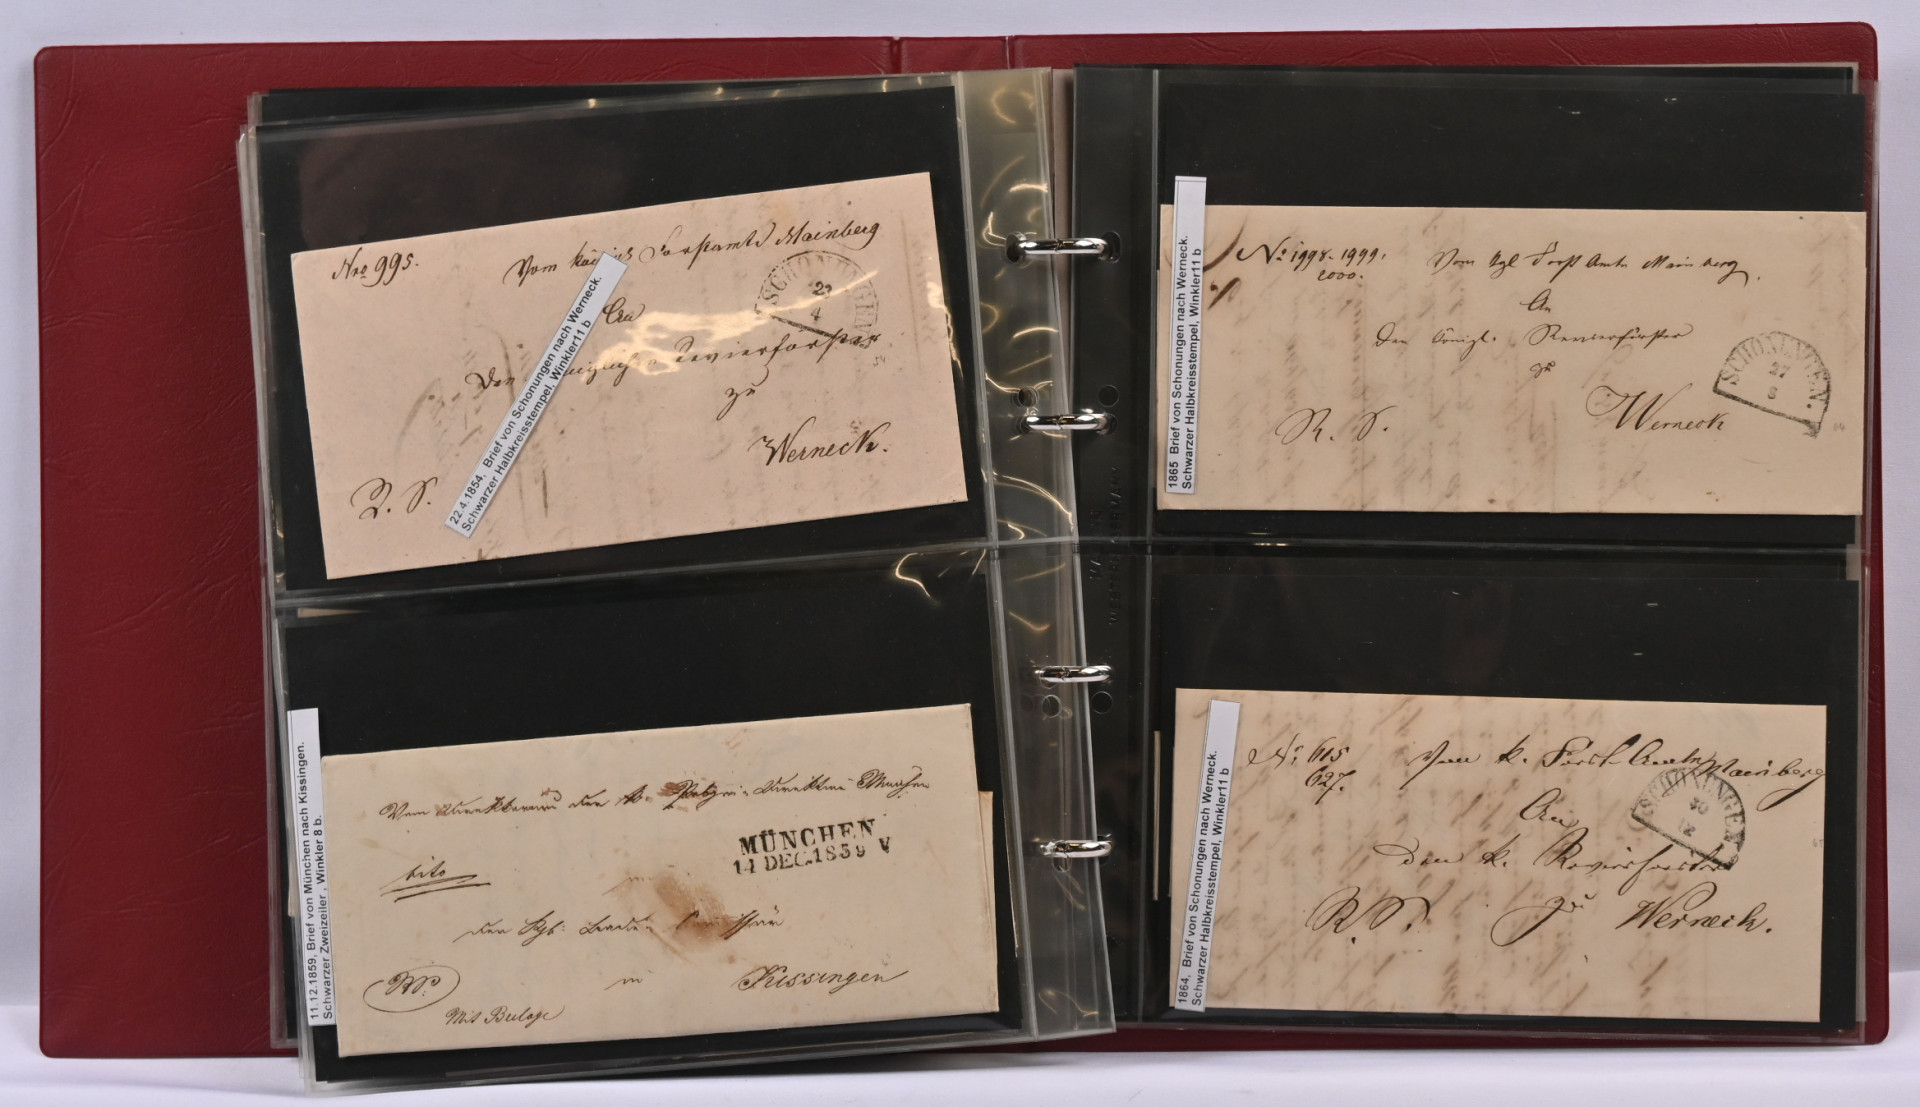 Nro 995.
Vom königl Forstamte Mainberg
SCHONUNGEN
22
4
An
Den königlichen Revierförster
zu
Werneck.
R. S.
22.4.1854, Brief von Schonungen nach Werneck.
Schwarzer Halbkreisstempel, Winkler11 b
Vom
MÜNCHEN
14 DEC.1859 V
cito
in
Kissingen
Mit Beilage
11.12.1859, Brief von München nach Kissingen.
Schwarzer Zweizeiler , Winkler 8 b.
No 1998-1999.
2000.
Vom kgl Forst Amte Mainberg.
An
Den königl. Revierförster
zu
Werneck
R. S.
SCHONUNGEN.
27
8
1865 Brief von Schonungen nach Werneck.
Schwarzer Halbkreisstempel, Winkler11 b
No 615
627.
Vom k. Forst-Amte Mainberg
SCHONUNGEN
30
12
An
Den k. Revierförster
zu
Werneck.
R. S.
1864, Brief von Schonungen nach Werneck.
Schwarzer Halbkreisstempel, Winkler11 b